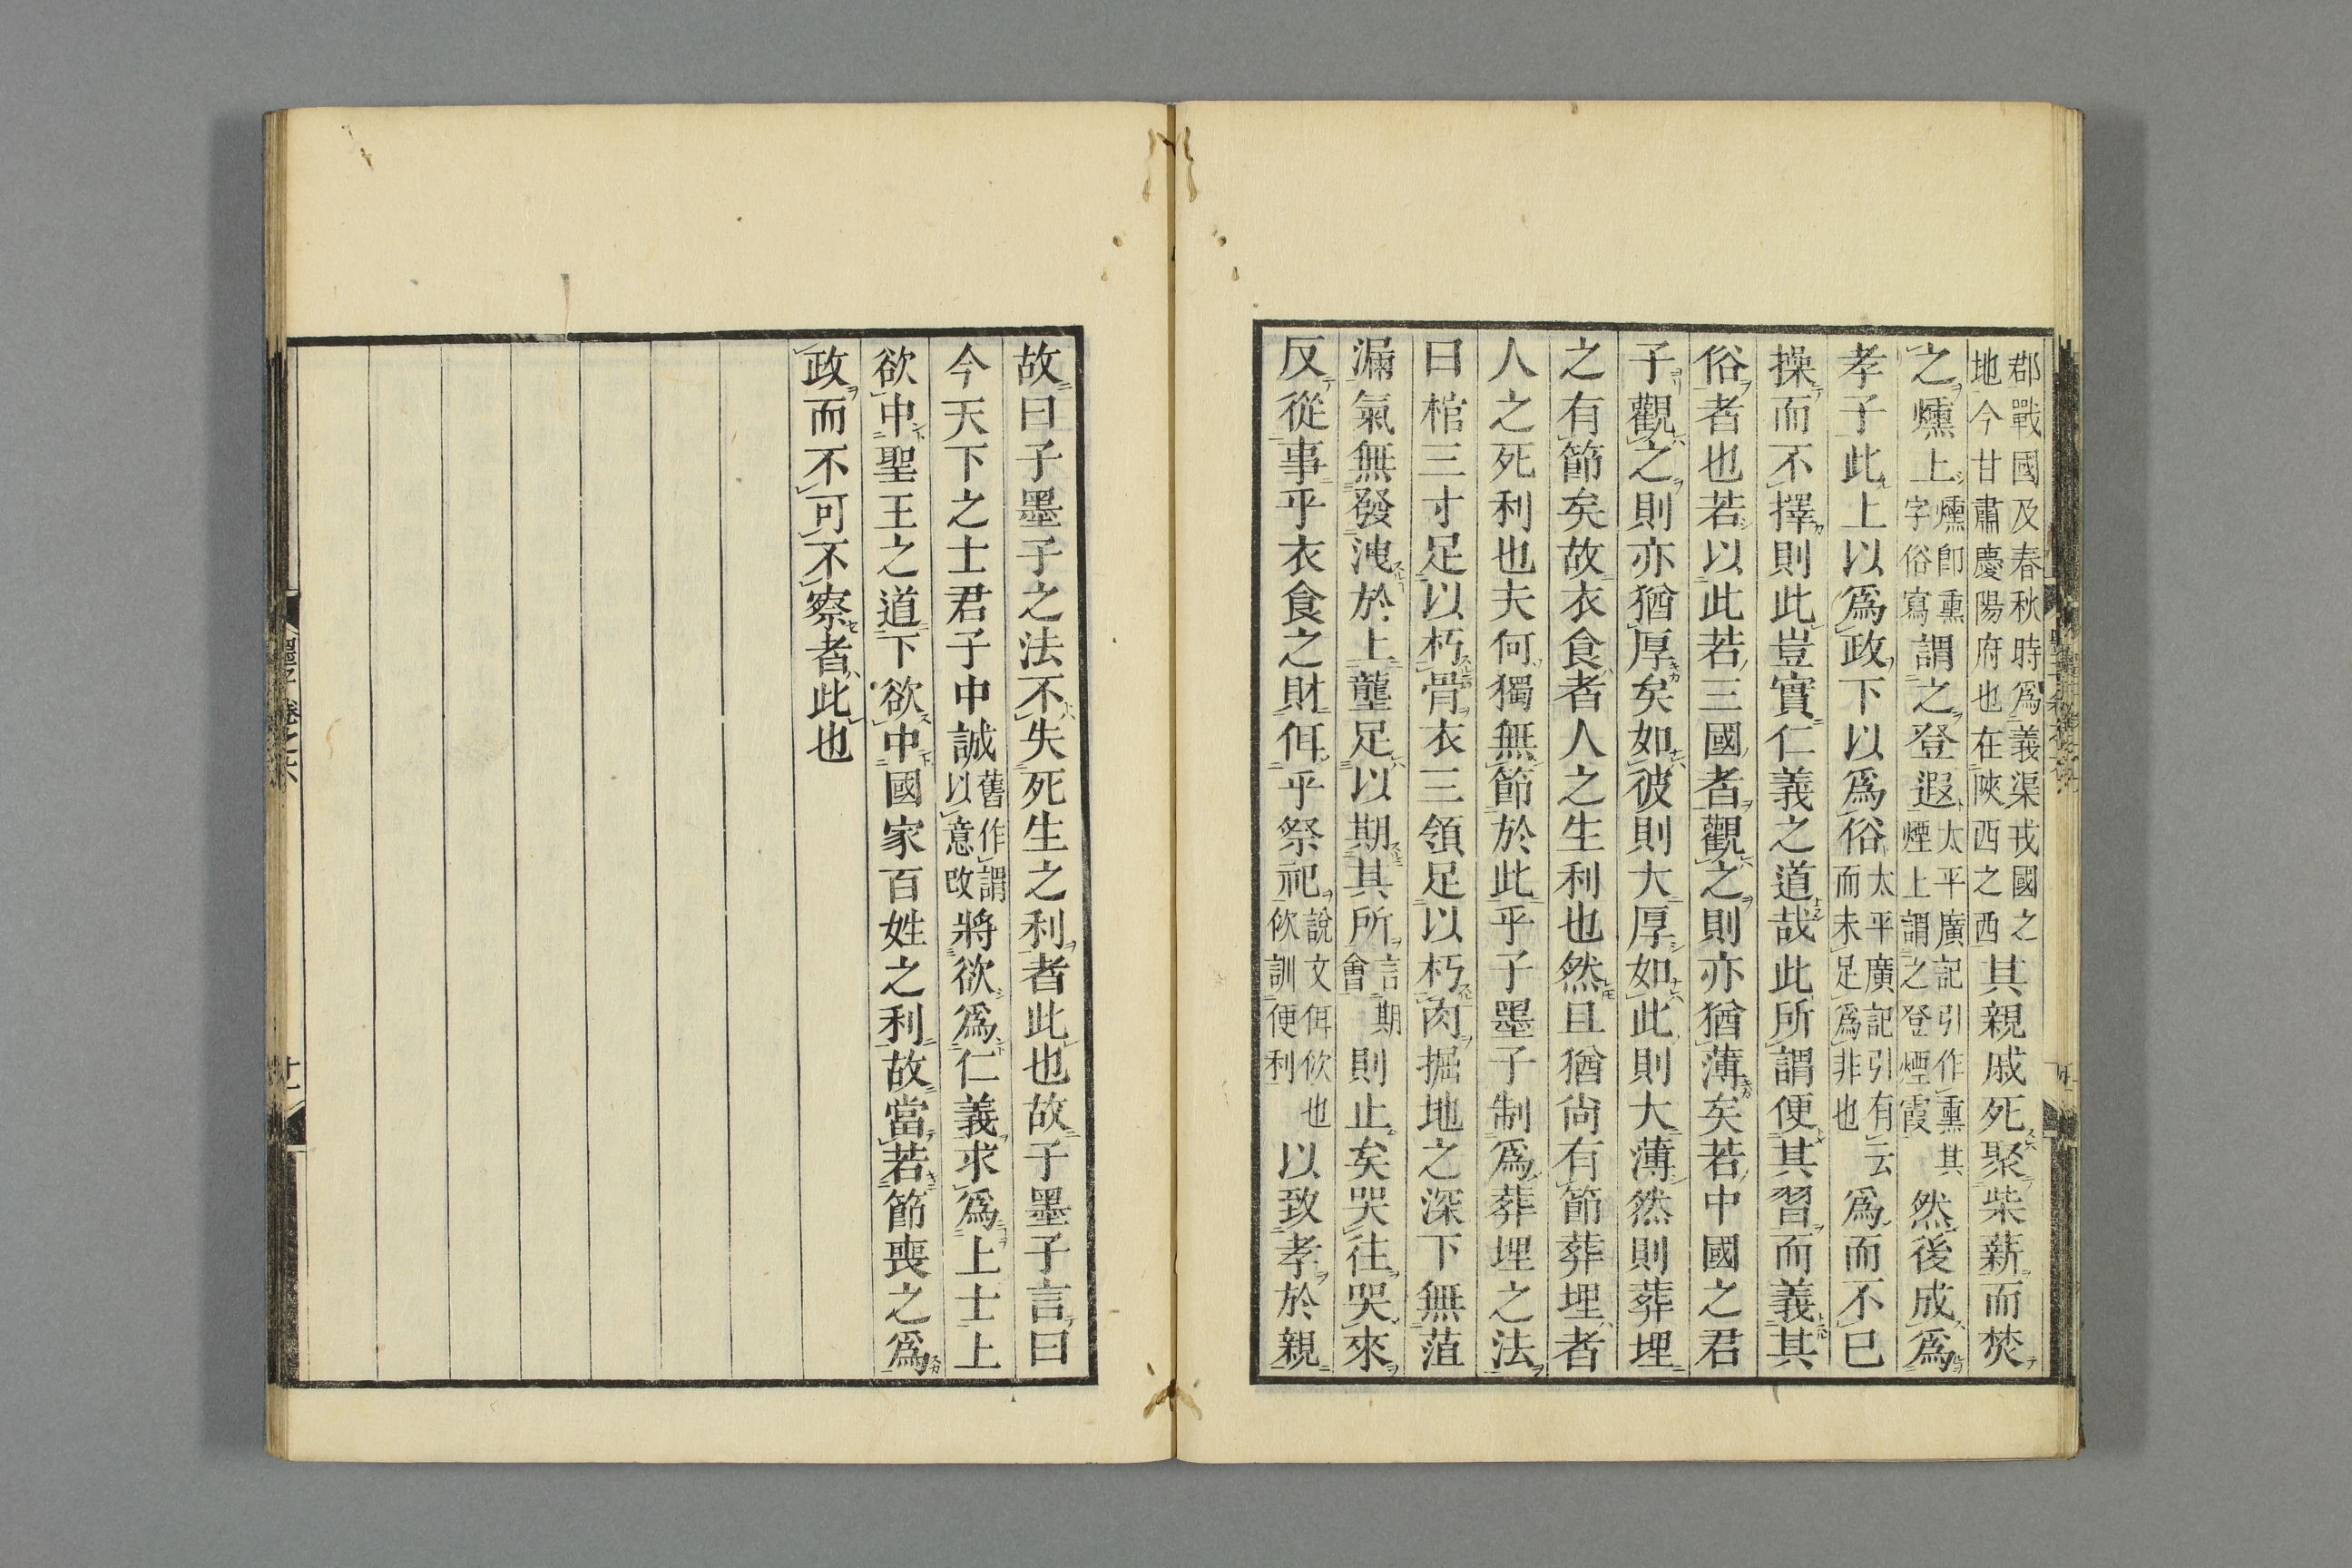 郡戰國及春秋時爲義渠戎國之地今甘肅慶陽府也在陝西之西其親戚死聚柴薪而焚
之燻上燻卽熏字俗寫謂之登遐太平廣記引作熏其煙上謂之登煙霞然後成爲
孝子此上以爲政下以爲俗太平廣記引有云而未足爲非也爲而不已
操而不擇則此豈實仁義之道哉此所謂便其習而義其
俗者也若以此若三國者觀之則亦猶薄矣若中國之君
子觀之則亦猶厚矣如彼則大厚如此則大薄然則葬埋
之有節矣故衣食者人之生利也然且猶尙有節葬埋者
人之死利也夫何獨無節於此乎子墨子制爲葬埋之法
曰棺三寸足以朽骨衣三領足以朽肉掘地之深下無菹
漏氣無發洩於上壟足以期其所言期會則止矣哭往哭來
反從事乎衣食之財佴乎祭祀說文佴佽也佽訓便利以致孝於親
故曰子墨子之法不失死生之利者此也故子墨子言曰
今天下之士君子中誠舊作謂以意改將欲爲仁義求爲上士上
欲中聖王之道下欲中國家百姓之利故當若節喪之爲
政而不可不察者此也
墨子卷之六